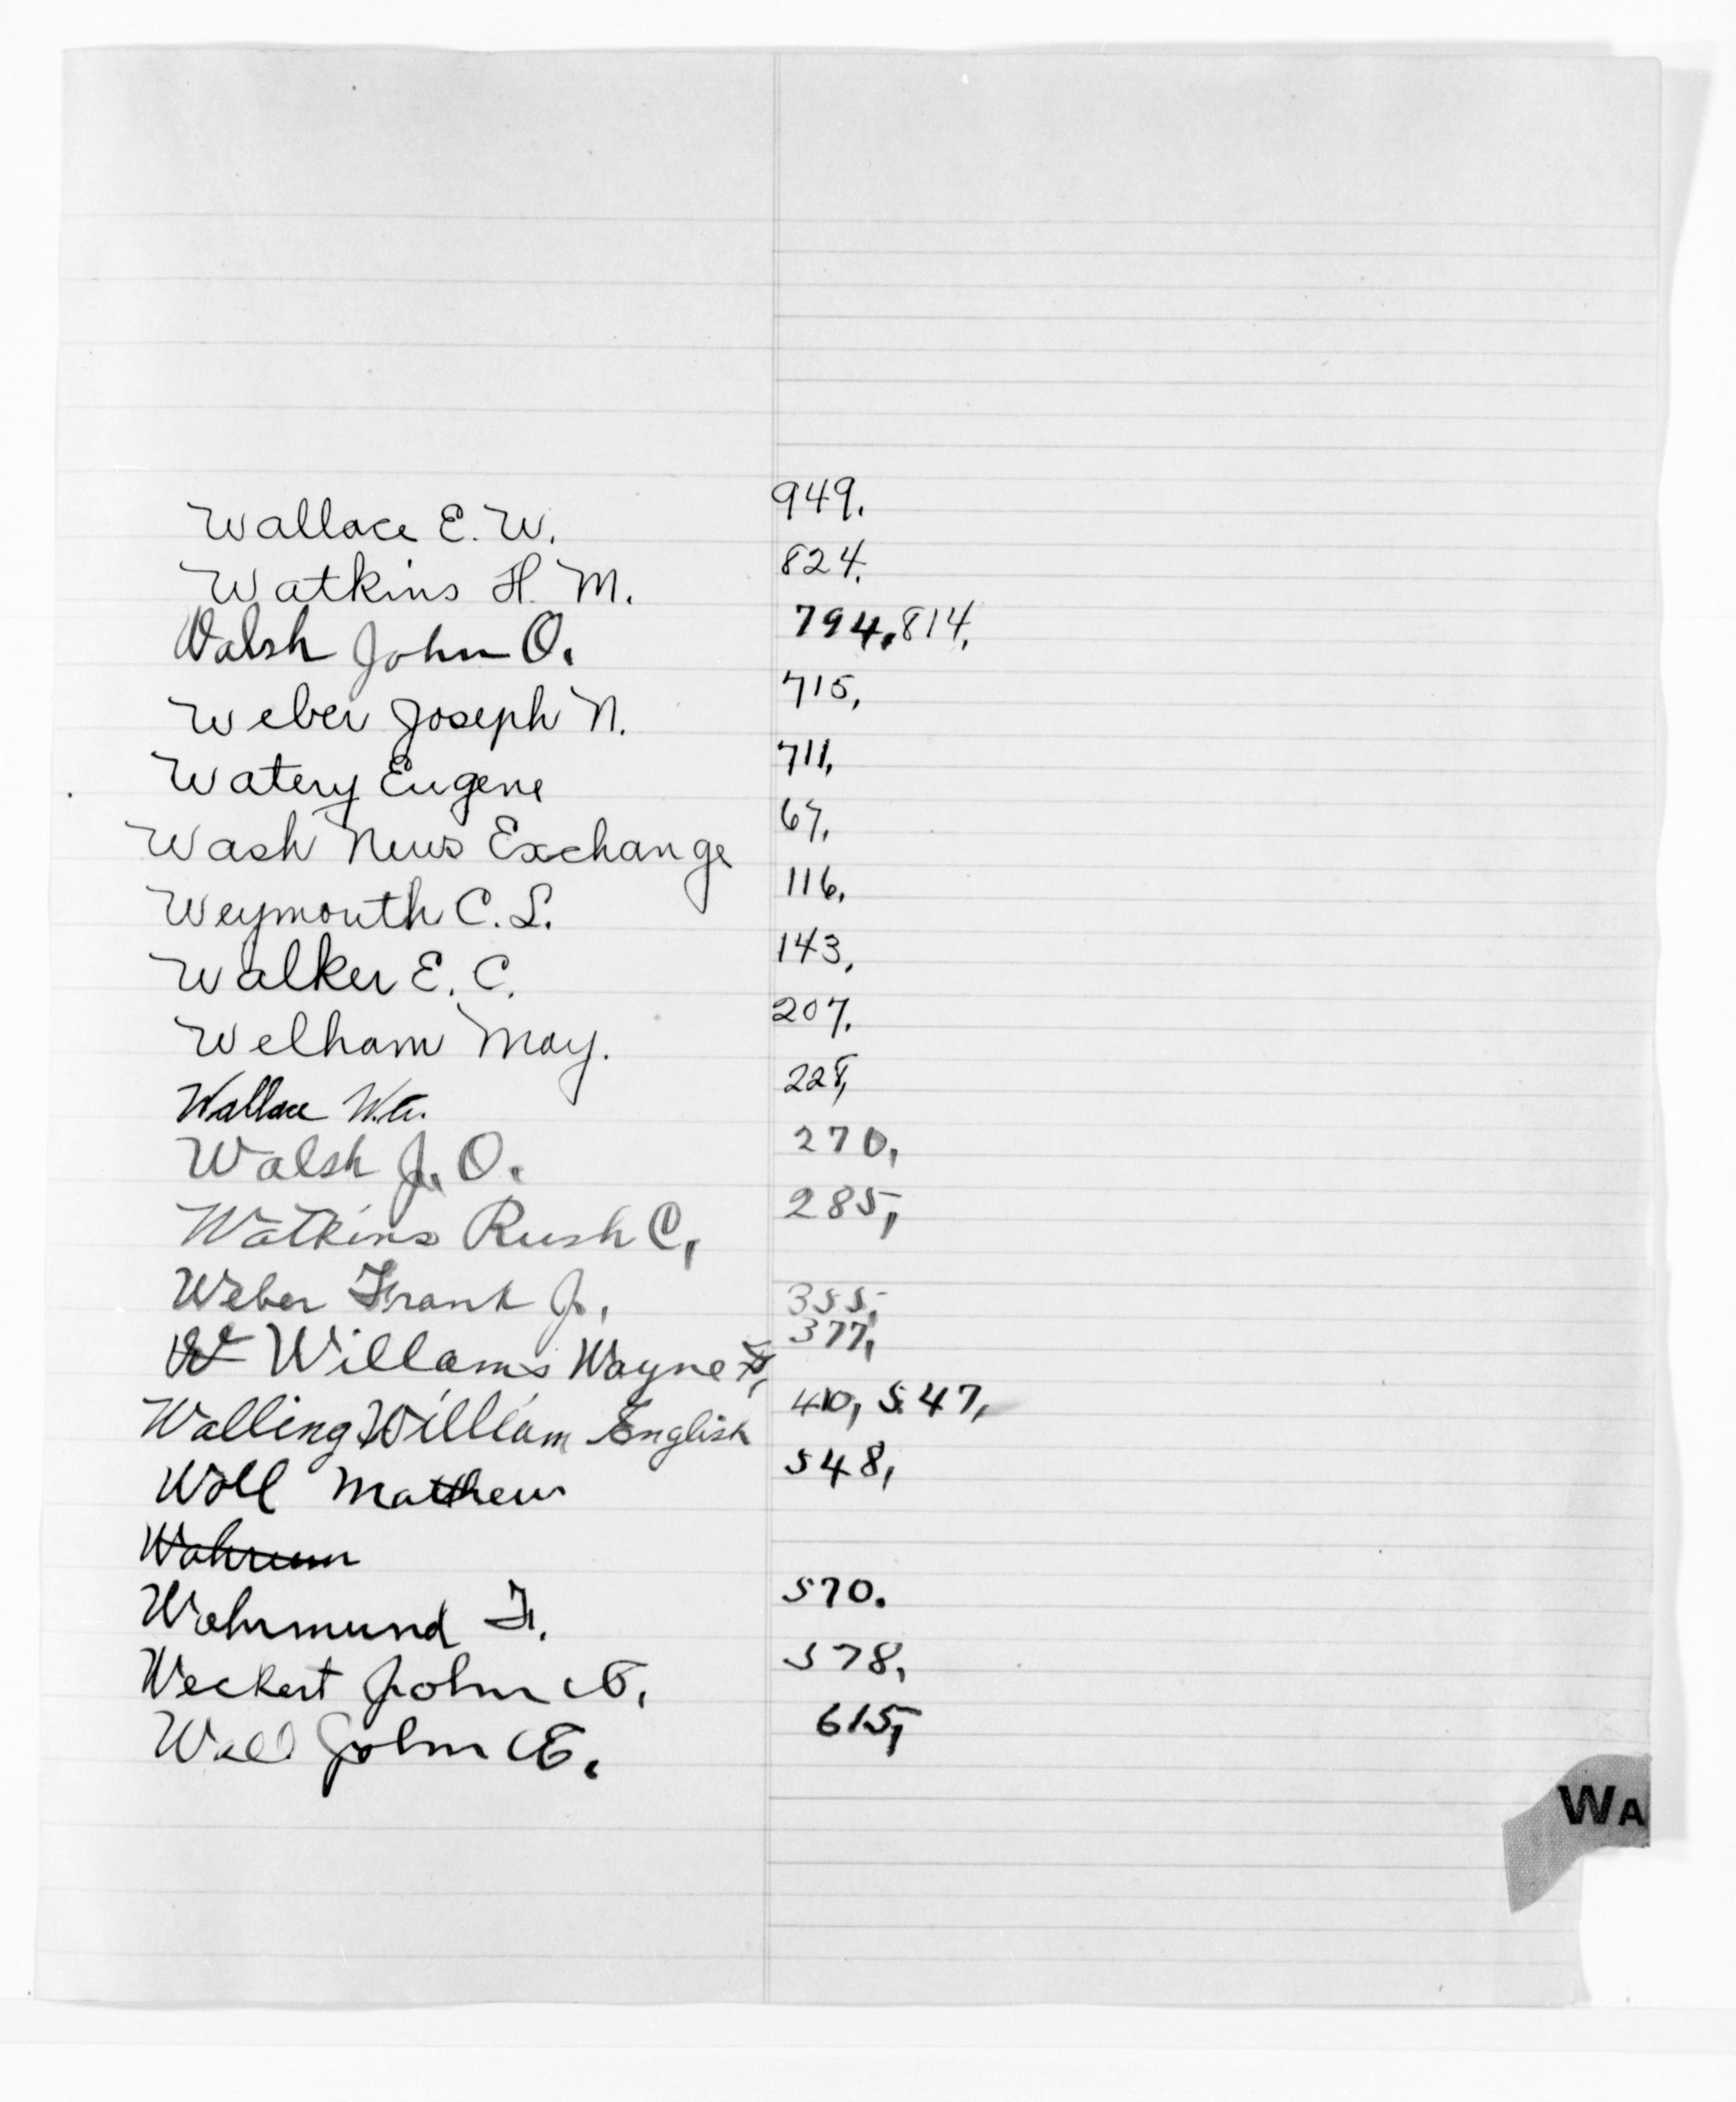 Wallace E. W. 949.
Watkins H. M. 824.
Walsh John O. 794, 814,
Weber Joseph N. 715,
Watery Eugene 711,
Wash News Exchange 67,
Weymouth C. L. 116,
Walker E. C. 143,
Welham May. 207.
Wallace 228,
Walsh J. O. 270,
Watkins Rush C, 285,
Weber Frank J, 355,
W Willams Wayne F, 377,
Walling William English 410, 547,
Woll Matthew 548,
Wahrmund F. 570.
Weckert John 578,
Wall John E. 615,
WA